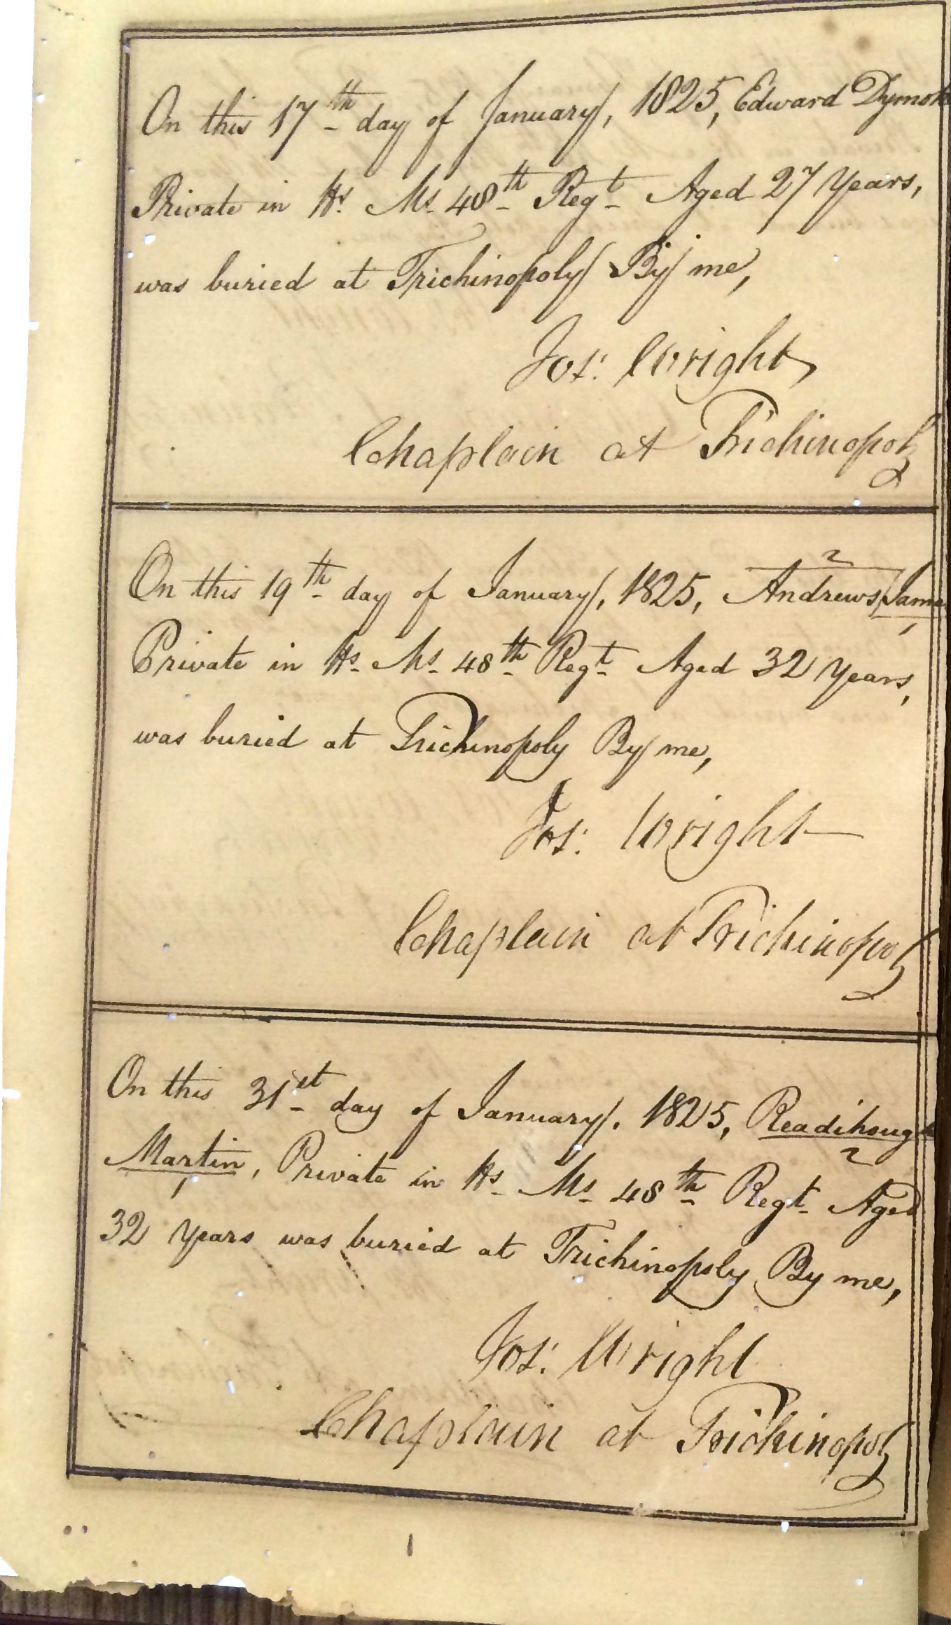 On this 17th day of January, 1825, Edward Dymok
Private in Hs. Ms. 48th Regt. Aged 27 Years,
was buried at Trichinopoly By me,
Jos: Wright,
Chaplain at Trichinopoly
2
On this 19th day of January, 1825, Andrews, Jame
Private in Hs. Ms. 48th Regt. Aged 32 Years,
was buried at Trichinopoly By me,
Jos: Wright
Chaplain at Trichinopoly
On this 31st day of January. 1825, Readihough
2
Martin, Private in Hs. Ms. 48th Regt. Aged
32 Years was buried at Trichinopoly By me,
Jos: Wright
Chaplain at Trichinopoly